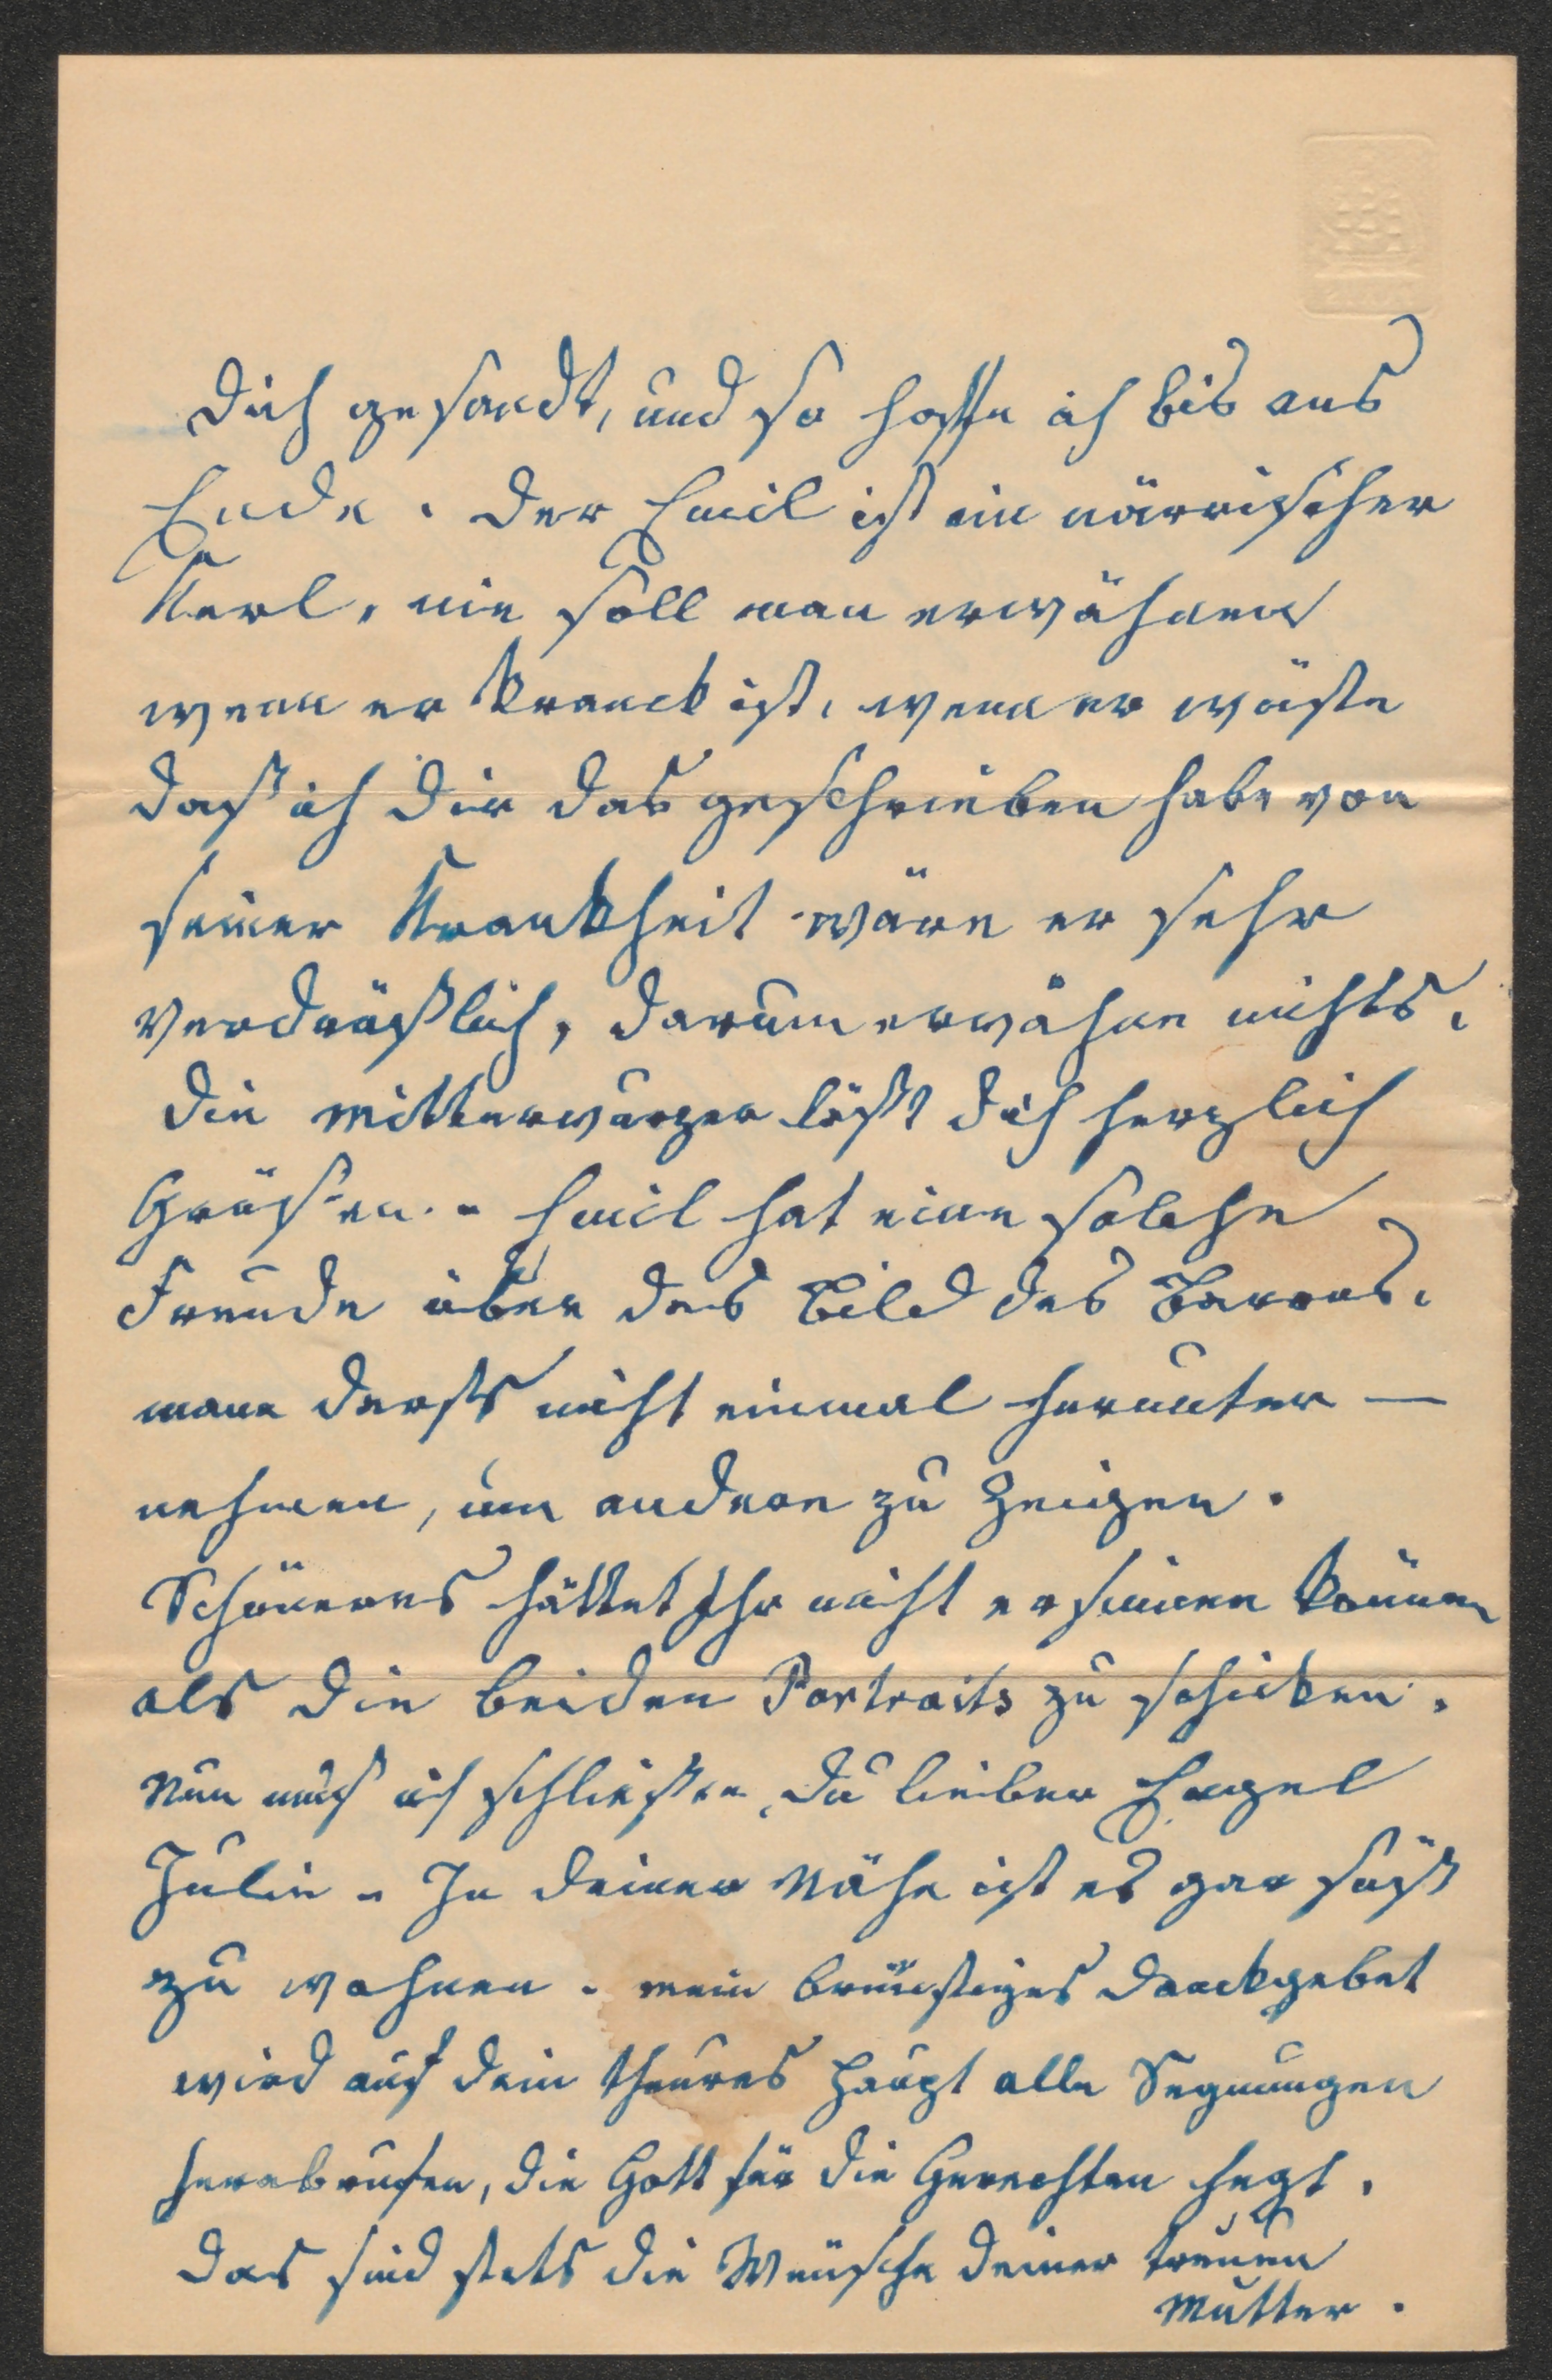 Dich gesandt, und so hoffe ich bis ans
Ende. Der Emil ist ein närrischer
Kerl, nie soll man erwähnen
wenn er kranck ist, wenn er wüste
daß ich dir das geschrieben habe von
seiner Krankheit wäre er sehr
verdrüßlich, darum erwähne nichts.
Die Mitterwurzer läßt dich herzlich
Grüßen. - Emil hat eine solche
Freude über das Bild des Barons.
man derfts nicht einmal herunter —
nehmen, um andere zu zeigen.
Schöneres hättet Ihr nicht ersinnen können
als die beiden Portraits zu schicken.
Nun muß ich schließen, du lieber Engel
Julie - In deiner Nähe ist es gar süß
zu wohnen. mein brünstiges Danckgebet
wird auf dein theures Haupt alle Segnungen
herabrufen, die Gott für die Gerechten hegt.
Das sind stets die Wünsche deiner treuen
Mutter.